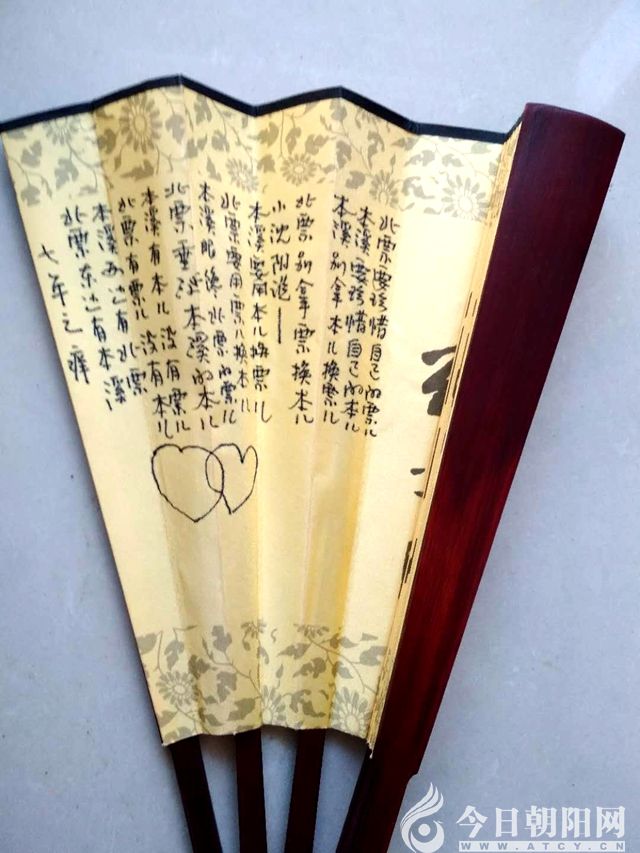 七年之痒
北票东边有本溪
本溪西边有北票
北票有票儿没有本儿
本溪有本儿没有票儿
北票垂涎本溪的本儿
本溪眼馋北票的票儿
北票要用票儿换本儿
本溪要用本儿换票儿
小沈阳说——
北票别拿票换本儿
本溪别拿本儿换票儿
本溪要珍惜自己的本儿
北票要珍惜自己的票儿
今日朝阳网
WWW.ATCY.CN